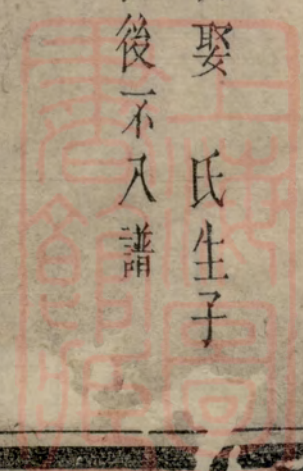 娶　氏生子
後不入譜